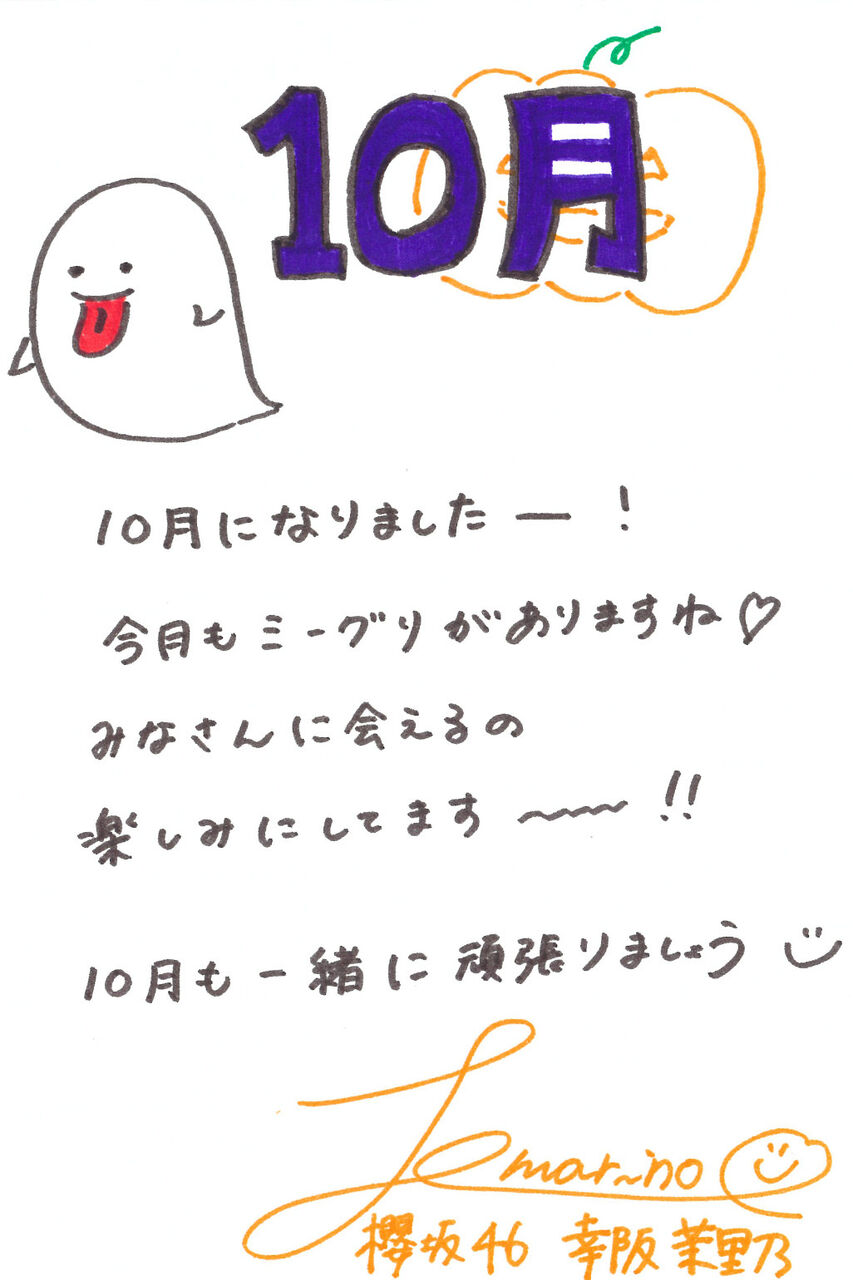 10月
10月になりましたー!
今月もミーグリがありますね♡
みなさんに会えるの
楽しみにしてます〜〜!!
10月も一緒に頑張りましょう
marino
櫻坂46 幸阪茉里乃